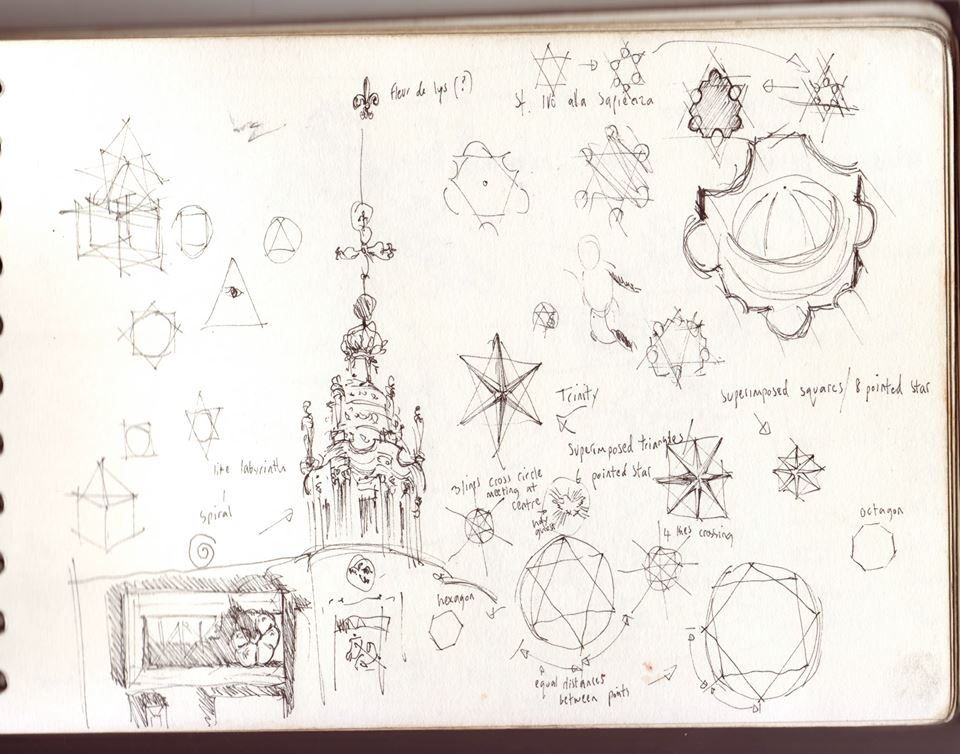 Fleur de lys (?)
St. Ivo alla Sapienza
Trinity
Superimposed squares / 8 pointed star
Superimposed triangles
6 pointed star
like labyrinth
3 lines cross circle
meeting at
centre
spiral
4 lines crossing
octagon
hexagon
equal distances
between points